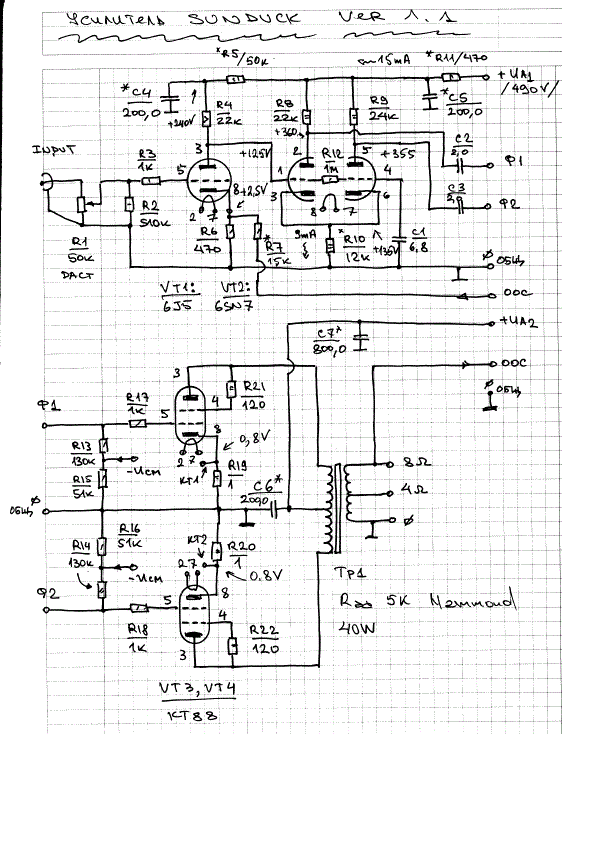 Усилитель SUNDUCK Ver 1.1
*R5/50к
~15mA
*R11/470
*C4
200,0
+240V
R4
22к
R8
22к
+360
R9
24к
*C5
200,0
+UA1
/490V/
INPUT
R3
1к
3
+125V
2
R12
1м
5
+355
C2
2,0
Ф1
5
1
4
8
+2,5V
3
6
C3
2,0
Ф2
R1
50к
DACT
R2
510к
2
7
R6
470
*R7
15к
8
7
9mA
*R10
12к
+135V
C1
6,8
Ø
общ
VT1:
6J5
VT2:
6SN7
ООС
+UA2
C7*
800,0
ООС
Ø
общ
3
R21
120
Ф1
R17
1к
5
4
8
0,8V
R13
130к
-Uсм
2
7
КТ1
R19
1
R15
51к
C6*
200,0
8Ω
4Ω
Ø
общ
Ø
R16
51к
R14
130к
-Uсм
КТ2
R20
1
2
7
0.8V
Tp1
Raa 5K Hammond
40W
Ф2
5
8
4
R18
1к
3
R22
120
VT3, VT4
KT88